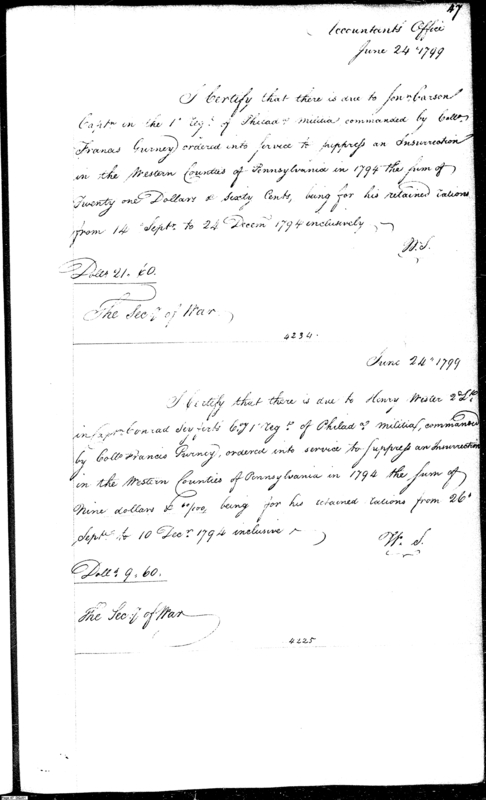 47
Accountants Office
June 24th 1799
I Certify that there is due to Jonn. Carson
Captn in the 1st Regt. of Philada. Militia commanded by Colln
Francis Gurney, ordered into service to suppress an Insurrection
in the Western Counties of Pennsylvania in 1794 the sum of
Twenty one Dollars & Sixty Cents, being for his retained rations
from 14th Septr. to 24 Decem 1794 inclusively
W. S.
Dolls 21. 60.
The Secy. of War
4234.
June 24th 1799
I Certify that there is due to Henry Wester 2d Lt.
in Captn. Conrad Seyferts Co. 1st Regt. of Philada. Militia, commanded
by Colln Francis Gurney, ordered into service to suppress an Insurrection
in the Western Counties of Pennsylvania in 1794 the sum of
Nine dollars & 60/100, being for his retained rations from 26th
Septr. to 10 Decr. 1794 inclusive
W. S.
Dolls. 9. 60.
The Secy. of War
4225